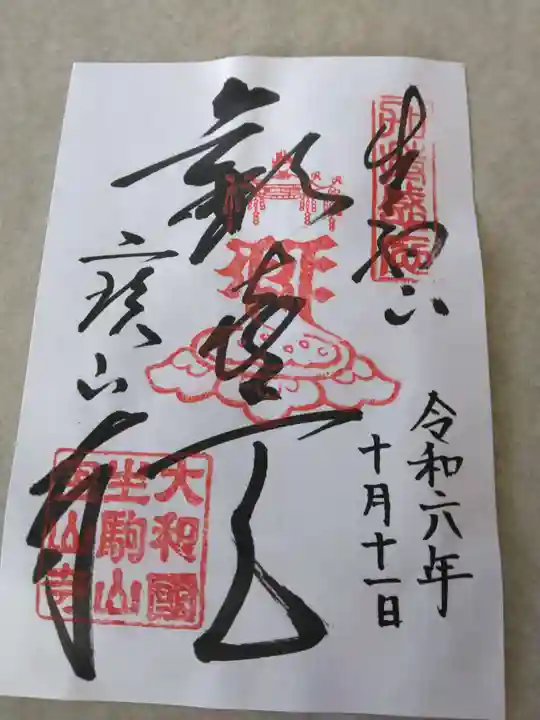 生駒山
歓喜天
宝山寺
令和六年
十月十一日
大和國
生駒山
宝山寺